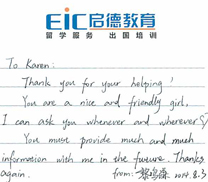 EIC启德教育
留学服务 出国培训
To Karen:
Thank you for your helping!
You are a nice and friendly girl,
I can ask you whenever and wherever
You must provide much and much
information with me in the future. Thanks
again. from: 黎鸣霖 2014.8.3